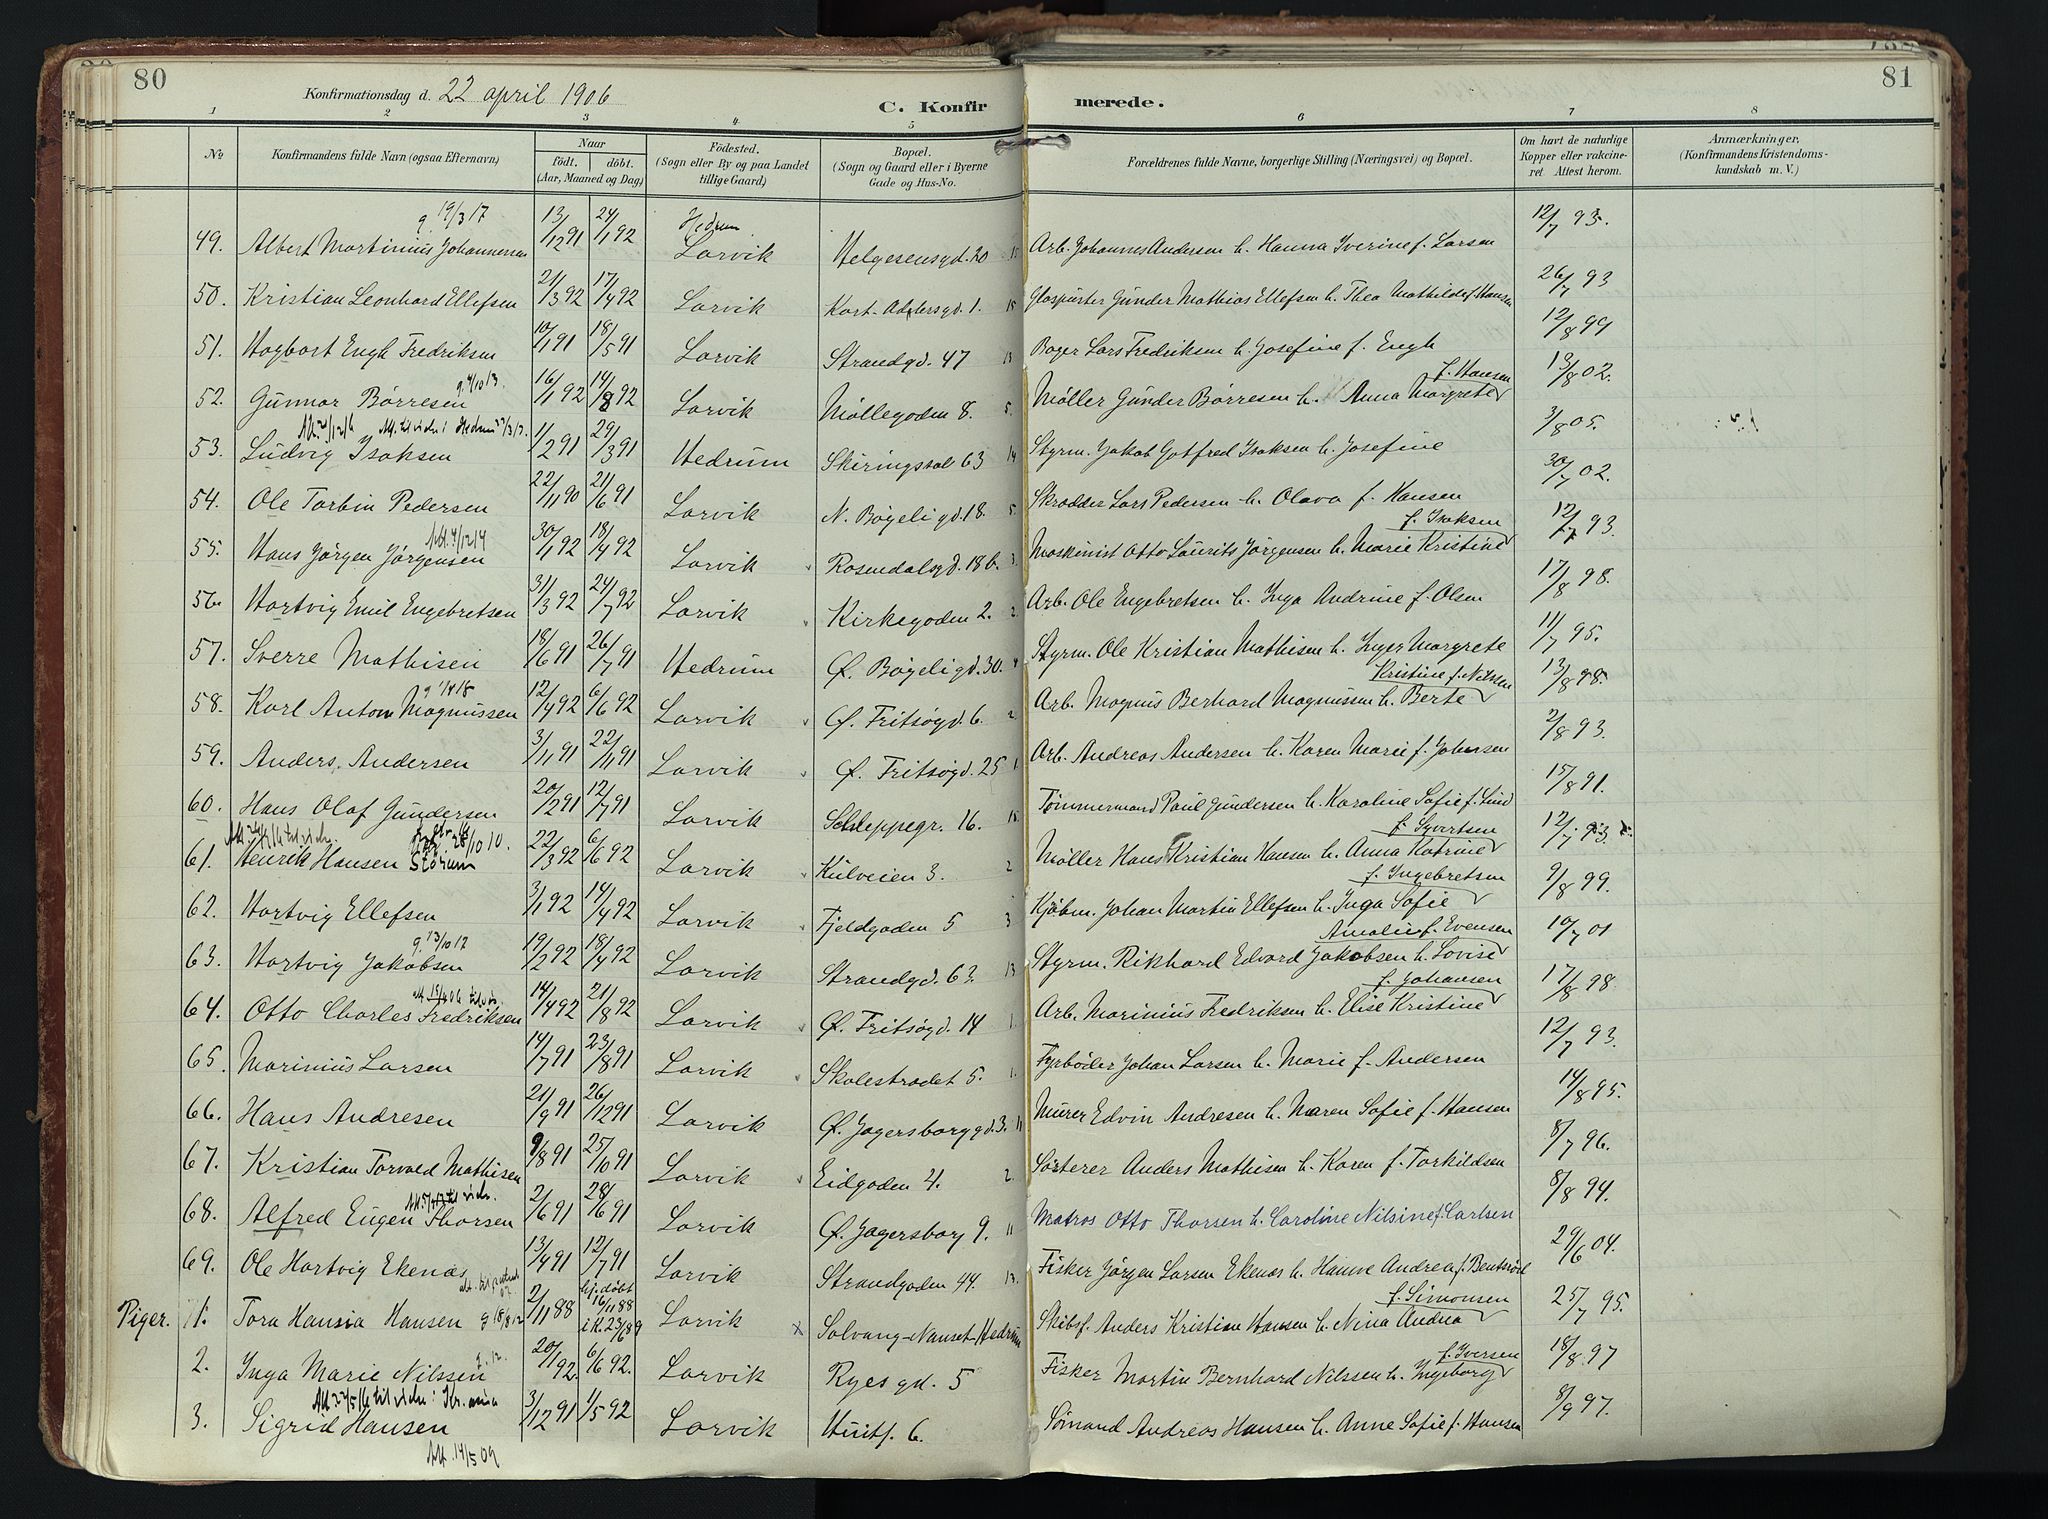 80
Konfirmationsdag d. 22 april 1906
C. Konfirmerede.
81
1 2 3 4 5 6 7 8
No
Konfirmandens fulde Navn (ogsaa Efternavn)
Naar
födt. döbt.
(Aar, Maaned og Dag)
Födested.
(Sogn eller By og paa Landet
tillige Gaard)
Bopæl.
(Sogn og Gaard eller i Byerne
Gade og Hus-No.
Forældrenes fulde Navne, borgerlige Stilling (Næringsvei) og Bopæl.
Om havt de naturlige
Kopper eller vakcine-
ret Attest herom.
Anmærkninger,
(Konfirmandens Kristendoms-
kundskab m. V.)
g. 19/3 17
49. Albert Martinius Johannessen 13/12 91 24/1 92 Hedrum Larvik Helgesensgd. 20 15 Arb. Johannes Andersen h. Hanna Iverine f. Larsen 12/7 93.
50. Kristian Leonhard Ellefsen 21/3 92 17/4 92 Larvik Kort-Adelersgd. 1. 15 Glaspuster Gunder Mathias Ellefsen h. Thea Mathilde f. Hansen 26/7 93
51. Hagbart Engh Fredriksen 10/1 91 18/5 91 Larvik Strandgd. 47 13 Bager Lars Fredriksen h. Josefine f. Engh 12/8 99
52. Gunnar Börresen g. 4/10 13. 16/1 92 14/8 92 Larvik Möllegaden 8. 5. Möller Gunder Börresen h. Anna Margrete f. Hansen 13/8 02.
53. Ludvig Isaksen 1/2 91 29/3 91 Hedrum Skiringssal 63 14 Styrm. Jakob Gotfred Isaksen h. Josefine 3/8 05.
54. Ole Torbin Pedersen 22/11 90 21/6 91 Larvik N. Bögeligd. 18. 5. Skrædder Lars Pedersen h. Olava f. Hansen 30/7 02.
55. Hans Jörgen Jörgensen 30/1 92 18/4 92 Larvik Rosendalsgd. 18 b. 3. Maskinist Otto Laurits Jörgensen h. Marie Kristine f. Isaksen 12/7 93.
56. Hartvig Emil Engebretsen 31/3 92 24/7 92 Larvik Kirkegaden 2. 2. Arb. Ole Engebretsen h. Inga Andrine f. Olsen 17/8 98.
57. Sverre Mathisen 18/6 91 26/7 91 Hedrum Ø. Bögeligd. 30. 4 Styrm. Ole Kristian Mathisen h. Inger Margrete 11/7 95.
58. Karl Anton Magnussen 12/4 92 6/6 92 Larvik Ø. Fritsögd. 6. 2 Arb. Magnus Berhard Magnussen h. Berte Kristine f. Nilssen 13/8 98.
59. Anders Andersen 3/1 91 22/11 91 Larvik Ø. Fritsögd. 25 1. Arb. Andreas Andersen h. Karen Marie f. Johansen 2/8 93.
60. Hans Olaf Gundersen 20/2 91 12/7 91 Larvik Schleppegr. 16. 15 Tömmermand Paul Gundersen h. Karoline Sofie f. Lind 15/8 91.
61. Henrik Hansen Storum 28/10 10. 22/3 92 6/6 92 Larvik Kulveien 3. 2 Möller Hans Kristian Hansen h. Anna Katrine f. Syvertsen 12/7 93.
62. Hartvig Ellefsen 3/1 92 14/4 92 Larvik Fjeldgaden 5 3 Kjöbm. Johan Martin Ellefsen h. Inga Sofie f. Ingebretsen 9/8 99.
63. Hartvig Jakobsen g. 13/10 17 19/2 92 18/4 92 Larvik Strandgd. 63. 13 Styrm. Rikhard Edvard Jakobsen h. Lovise Amalie f. Evensen 10/7 01
64. Otto Charles Fredriksen 14/4 92 21/8 92 Larvik Ø. Fritsögd. 14 1. Arb. Marinius Fredriksen h. Elise Kristine f. Johansen 17/8 98
65. Marinius Larsen 14/7 91 23/8 91 Larvik Skolestrædet 5. 1. Fyrböder Johan Larsen h. Marie f. Andersen 12/7 93.
66. Hans Andresen 21/9 91 26/12 91 Larvik Ø. Jagersborggd. 3. 11 Murer Edvin Andresen h. Maren Sofie f. Hansen 14/8 95.
67. Kristian Torvald Mathisen 9/8 91 25/10 91 Larvik Eidgaden 4. 2. Sorterer Anders Mathisen h. Karen f. Torkildsen 8/7 96.
68. Alfred Eugen Thorsen 2/6 91 28/6 91 Larvik Ø. Jagersborg 9. 11 Matros Otto Thorsen h. Caroline Nilsine f. Carlsen 8/8 94.
69. Ole Hartvig Ekenæs 13/4 91 12/7 91 Larvik Strandgaden 44. 13. Fisker Jörgen Larsen Ekenæs h. Hanne Andrea f. Bentsröd 29/6 04.
Piger. 1. Tora Hansia Hansen g 18/8 12 2/11 88 hj. döbt 16/11 88 i K. 23/6 89 Larvik x Solvang-Nanset-Hedrum Skibsf. Anders Kristian Hansen h. Nina Andrea f. Simonsen 25/7 95.
2. Inga Marie Nilssen 20/1 92. 6/6 92. Larvik Ryesgd. 5 Fisker Martin Bernhard Nilssen h. Ingeborg f. Iversen 18/8 97
3. Sigrid Hansen 3/12 91 1/5 92 Larvik Huitf. 6. Sömand Andreas Hansen h. Anne Sofie f. Hansen 8/9 97.
14/5 09